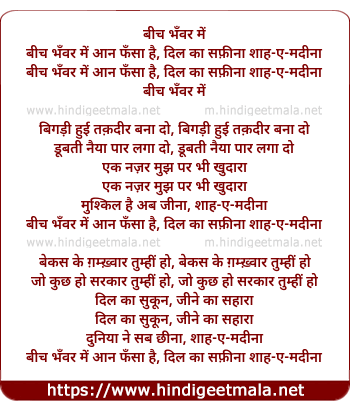 बीच भँवर में
बीच भँवर में आन फँसा है, दिल का सफ़ीना शाह-ए-मदीना
बीच भँवर में आन फँसा है, दिल का सफ़ीना शाह-ए-मदीना
बीच भँवर में
www.hindigeetmala.net m.hindigeetmala.net
बिगड़ी हुई तक़दीर बना दो, बिगड़ी हुई तक़दीर बना दो
डूबती नैया पार लगा दो, डूबती नैया पार लगा दो
एक नज़र मुझ पर भी खुदारा
एक नज़र मुझ पर भी खुदारा
मुश्किल है अब जीना, शाह-ए-मदीना
बीच भँवर में आन फँसा है, दिल का सफ़ीना शाह-ए-मदीना
www.hindigeetmala.net m.hindigeetmala.net
बेकस के ग़म्ख़्वार तुम्हीं हो, बेकस के ग़म्ख़्वार तुम्हीं हो
जो कुछ हो सरकार तुम्हीं हो, जो कुछ हो सरकार तुम्हीं हो
दिल का सुकून, जीने का सहारा
दिल का सुकून, जीने का सहारा
दुनिया ने सब छीना, शाह-ए-मदीना
बीच भँवर में आन फँसा है, दिल का सफ़ीना शाह-ए-मदीना
https://www.hindigeetmala.net